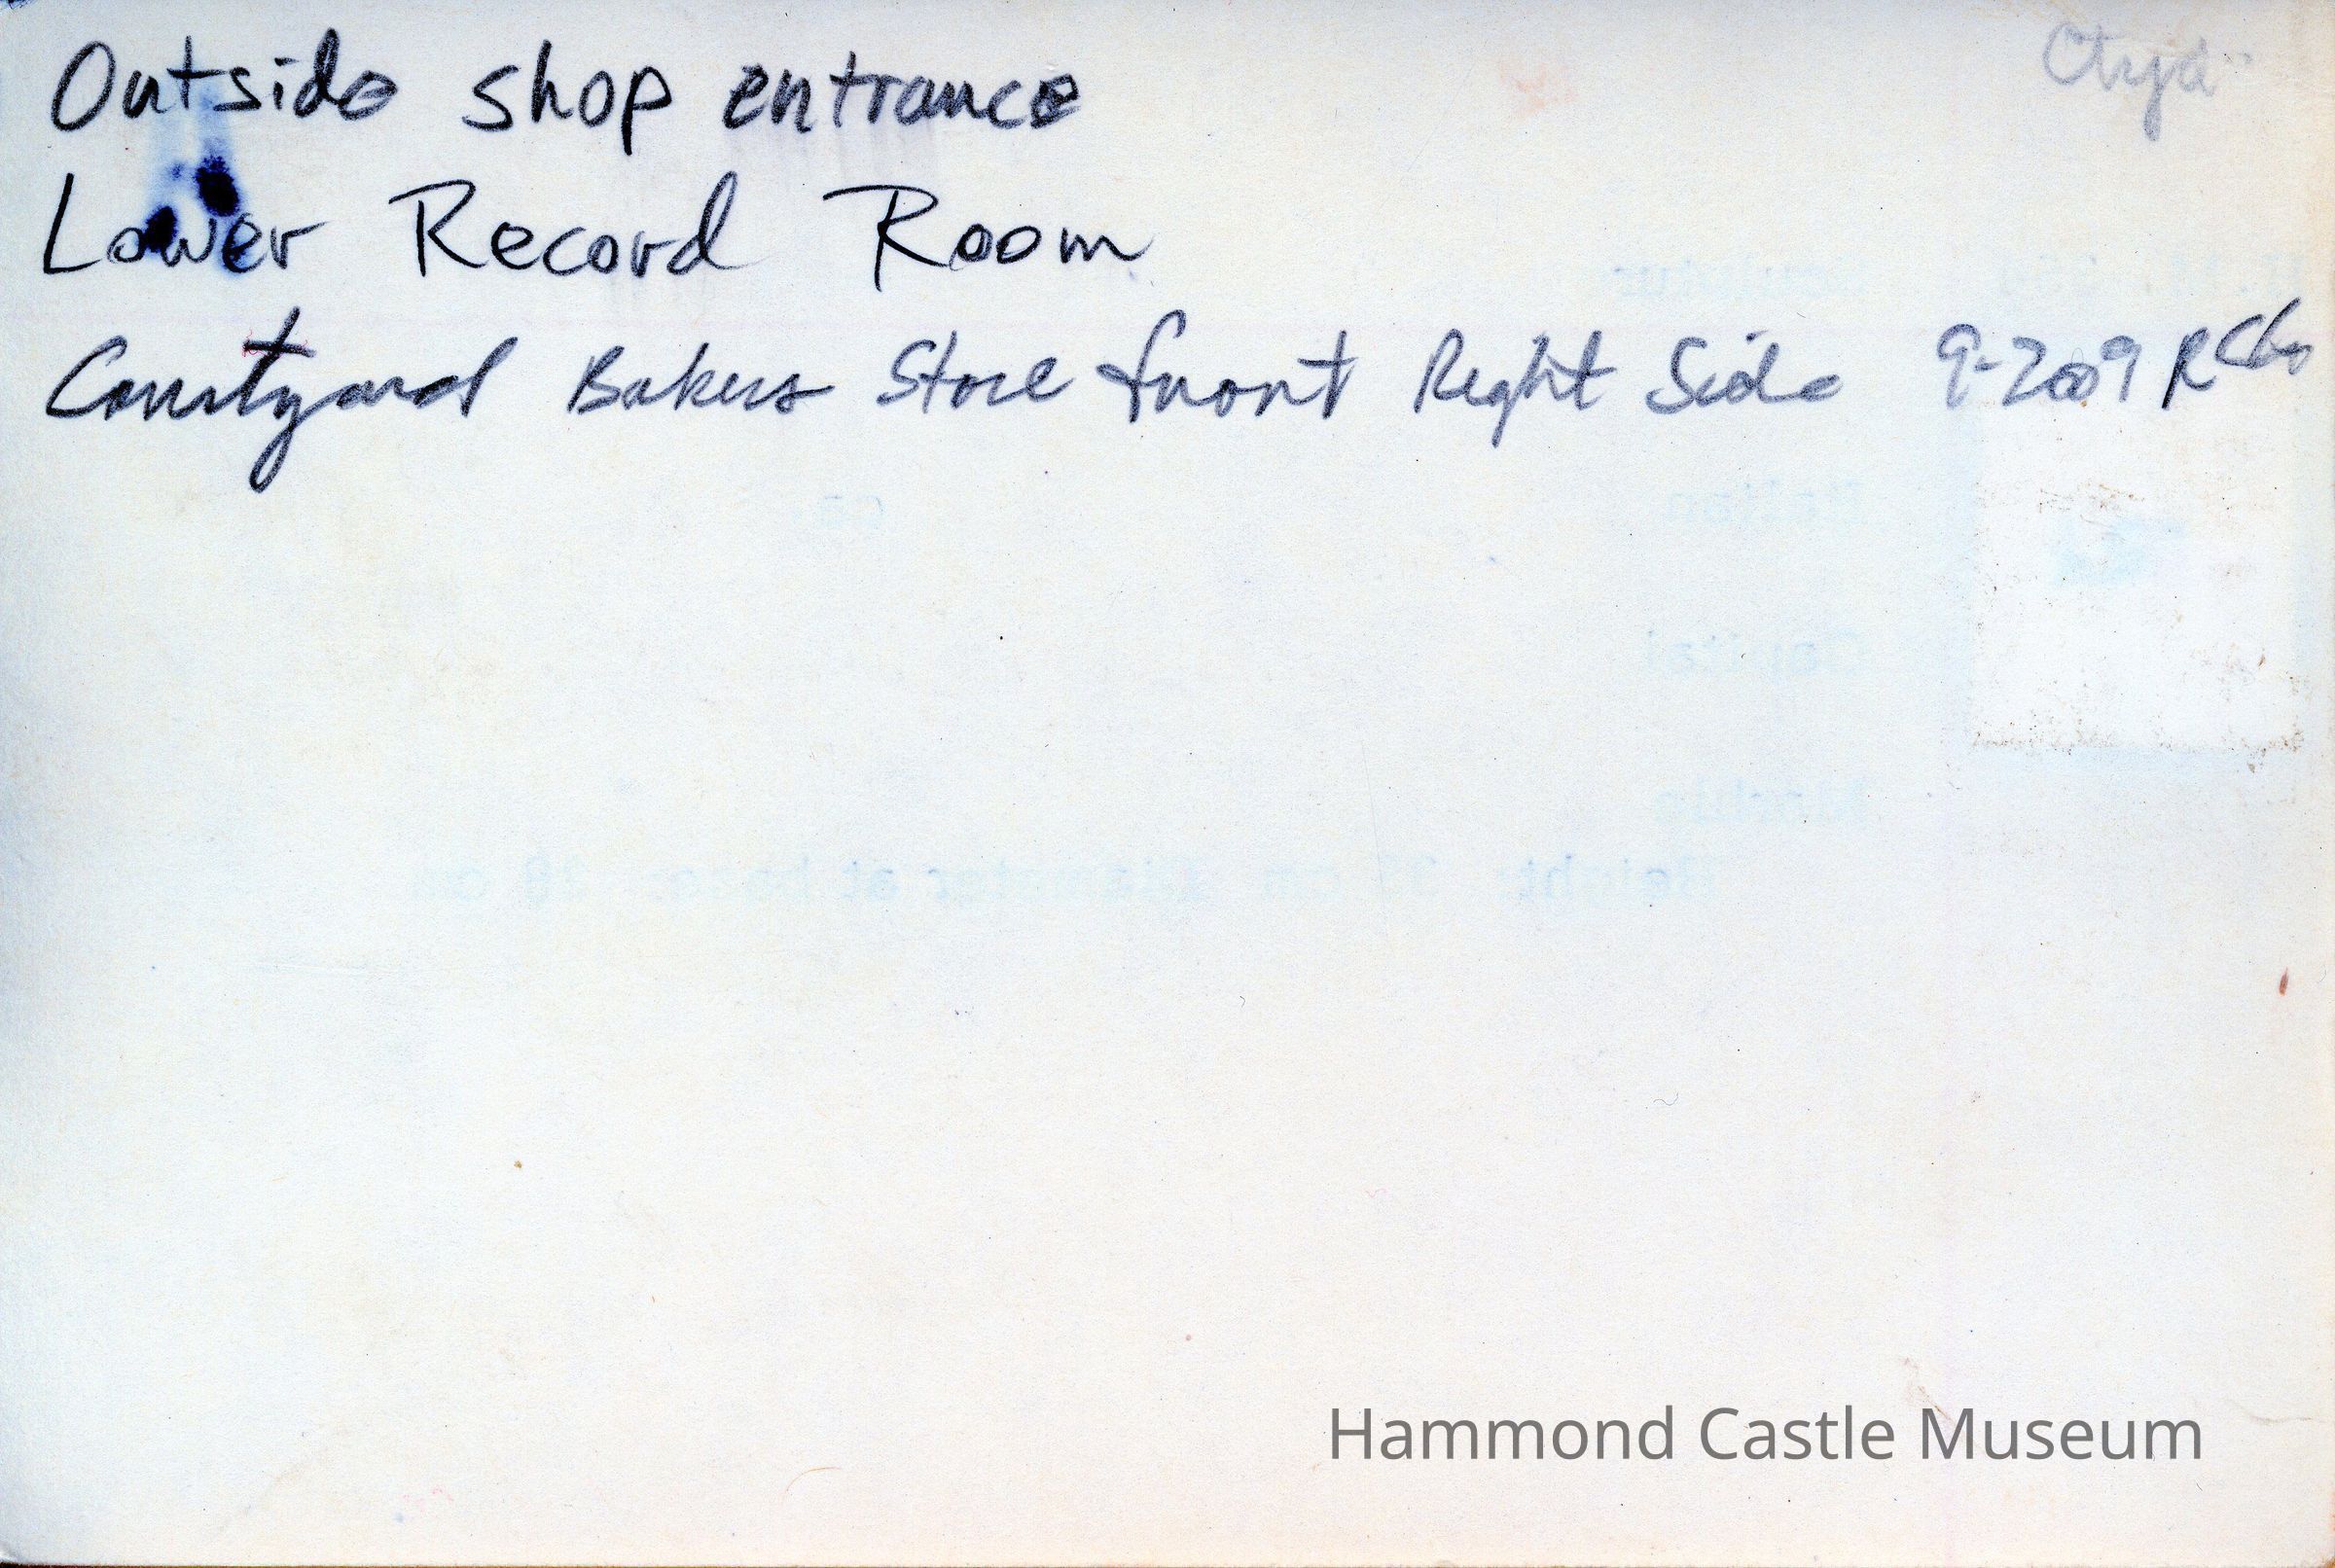 Ctyd
Outside shop entrance
Lower Record Room
Courtyard Bakers Store front Right Side 9-2009
Hammond Castle Museum